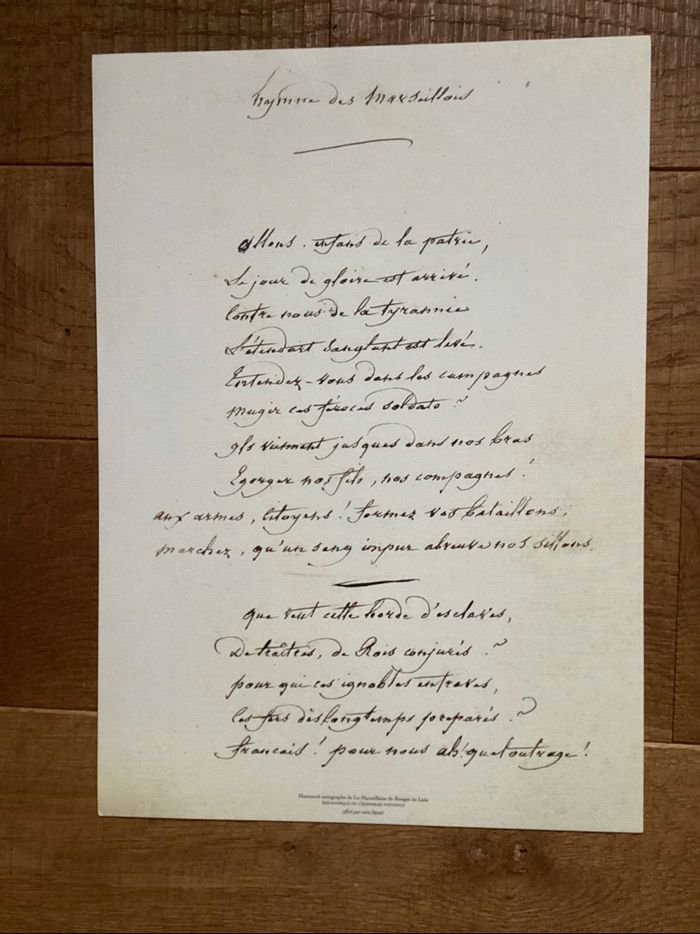 hymne des Marseillois
allons . enfans de la patrie,
Le jour de gloire est arrivé.
Contre nous de la tyrannie
L'étendart sanglant est levé.
Entendez-vous dans les campagnes
mugir ces féroces soldats ?
Ils viennent jusques dans nos bras
Egorger nos fils, nos compagnes !
aux armes, Citoyens ! formez vos bataillons ;
marchez, qu'un sang impur abreuve nos sillons.
que veut cette horde d'esclaves,
De traîtres, de Rois conjurés ?
pour qui ces ignobles entraves,
ces fers dès longtemps préparés ?
francais ! pour nous ah ! quel outrage !
Manuscrit autographe de La Marseillaise de Rouget de Lisle
BIBLIOTHÈQUE DE L'ASSEMBLÉE NATIONALE
offert par votre député